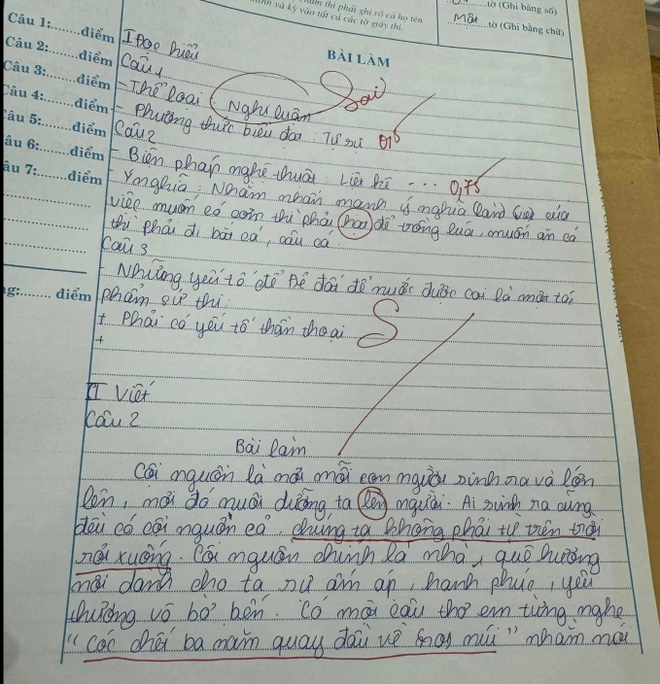 thí phải ghi rõ cả họ tên
và ký vào tất cả các tờ giấy thi.
tờ (Ghi bằng số)
Một tờ (Ghi bằng chữ)
Câu 1:.......điểm
Câu 2:.......điểm
Câu 3:.......điểm
Câu 4:.......điểm
Câu 5:.......điểm
âu 6:.......điểm
âu 7:.......điểm
ng:....... điểm
BÀI LÀM
I Đọc hiểu
Câu 1
- Thể loại : Nghị luận Sai
- Phương thức biểu đạt : Tự sự 0,5
Câu 2
- Biện pháp nghệ thuật : Liệt kê ... 0,75
- Ý nghĩa : Nhằm nhấn mạnh ý nghĩa của
việc muốn có cơm thì phải để trồng lúa, muốn ăn cá
thì phải đi bắt cá, câu cá
Câu 3
- Những yếu tố để Đẻ đất đẻ nước được coi là một tác
phẩm sử thi:
+ Phải có yếu tố thần thoại S
+
II Viết
Câu 2
Bài làm
Cội nguồn là nơi mỗi con người sinh ra và lớn
lên, nơi đó nuôi dưỡng ta lên người. Ai sinh ra cũng
đều có cội nguồn cả, chúng ta không phải từ trên trời
rơi xuống. Cội nguồn chính là nhà, quê hương
nơi dành cho ta sự ấm áp, hạnh phúc, yêu
thương vô bờ bến. Có một câu thơ em từng nghe
"Cóc chết ba năm quay đầu về núi" nhằm nói